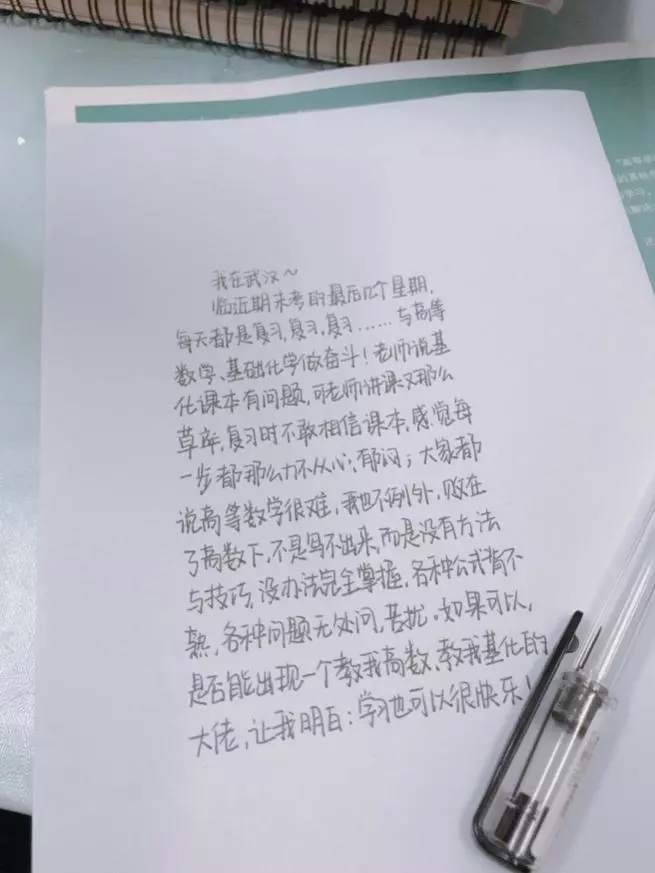 我在武汉~
临近期末考的最后几个星期,
每天都是复习,复习,复习……与高等
数学、基础化学做奋斗!老师说基
化课本有问题,可老师讲课又那么
草率,复习时不敢相信课本,感觉每
一步都那么力不从心,郁闷;大家都
说高等数学很难,我也不例外,败在
了高数下,不是写不出来,而是没有方法
与技巧,没办法完全掌握,各种公式背不
熟,各种问题无处问,苦扰。如果可以,
是否能出现一个教我高数,教我基化的
大佬,让我明白:学习也可以很快乐!
"高等
学习,